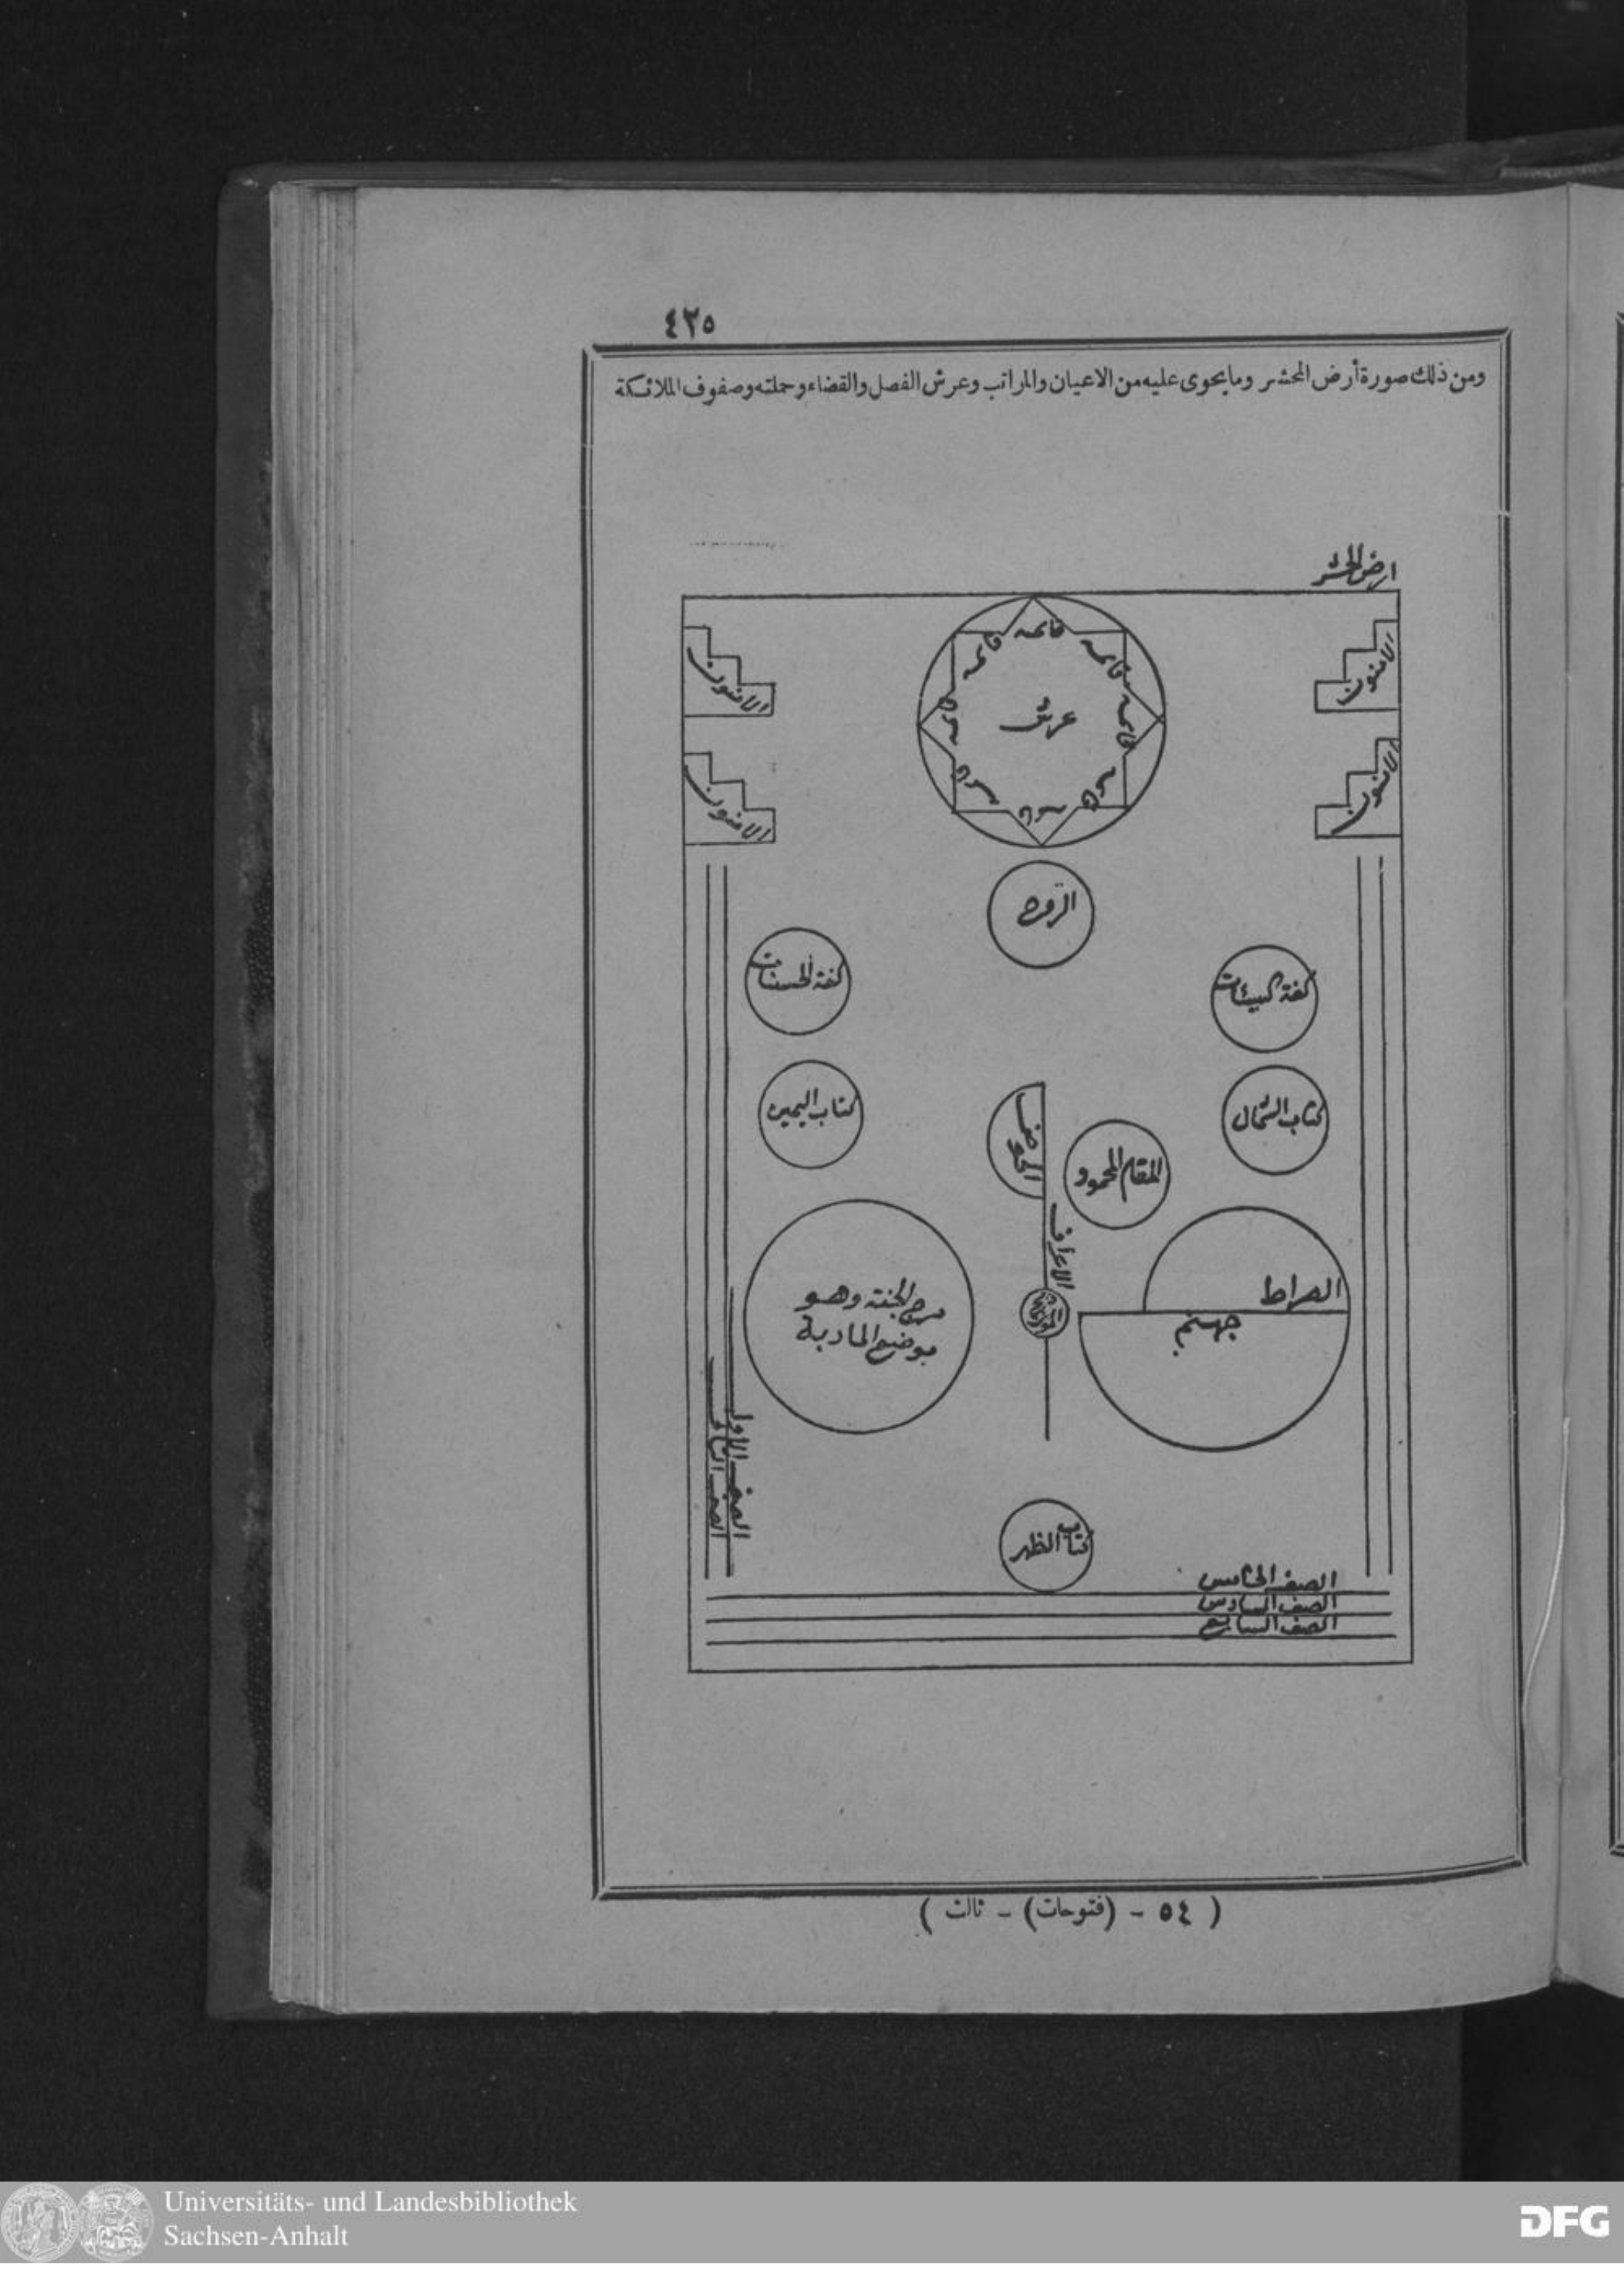 ٤٢٥
ومن ذلك صورة أرض المحشر وما يحوى عليه من الاعيان والمراتب وعرش الفصل والقضاء وحملته وصفوف الملائكة
ارض الحشر
الامنون
الامنون
الامنون
الامنون
قائمه
قائمه
قائمه
قائمه
قائمه
قائمه
قائمه
قائمه
عرش
الروح
كفة السيئات
كفة الحسنات
كتاب الشمال
كتاب اليمين
الحوض
المقام المحمود
الاعراف
الصراط
جهنم
مرج الجنة وهو
موضع المادبة
الصف الاول
كتاب الظهر
الصف الخامس
الصف السادس
الصف السابع
( ٥٤ - (فتوحات) - ثالث )
Universitäts- und Landesbibliothek
Sachsen-Anhalt
DFG